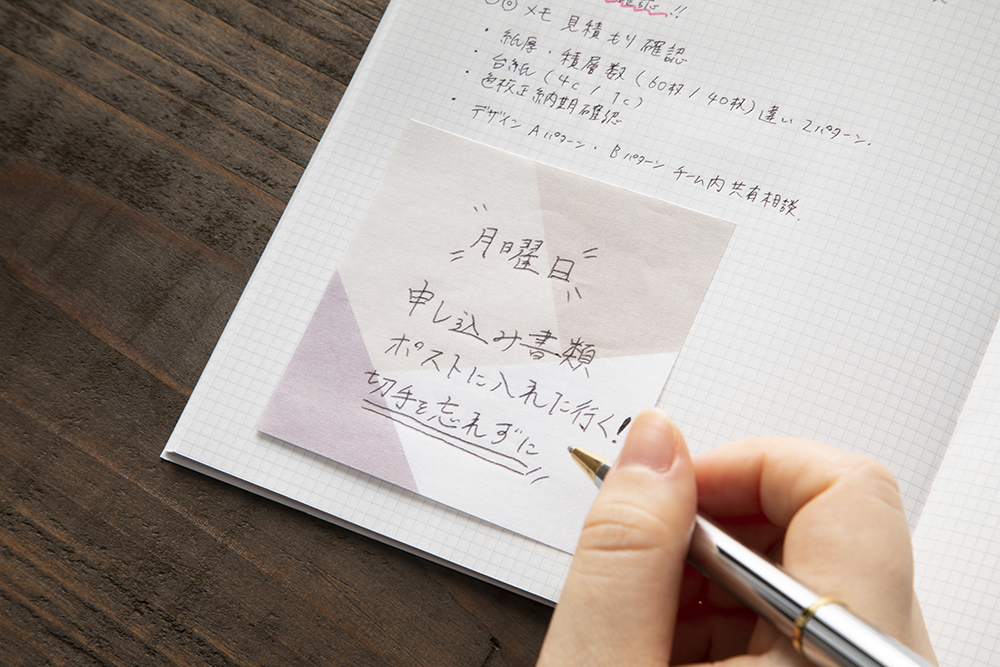 確認!!
◎メモ 見積もり確認
・紙厚・積層数(60枚/40枚)違い2パターン.
台紙(4c/1c)
・色校正納期確認
・デザインAパターン・Bパターン チーム内共有相談.
月曜日
申し込み書類
ポストに入れに行く!
切手を忘れずに